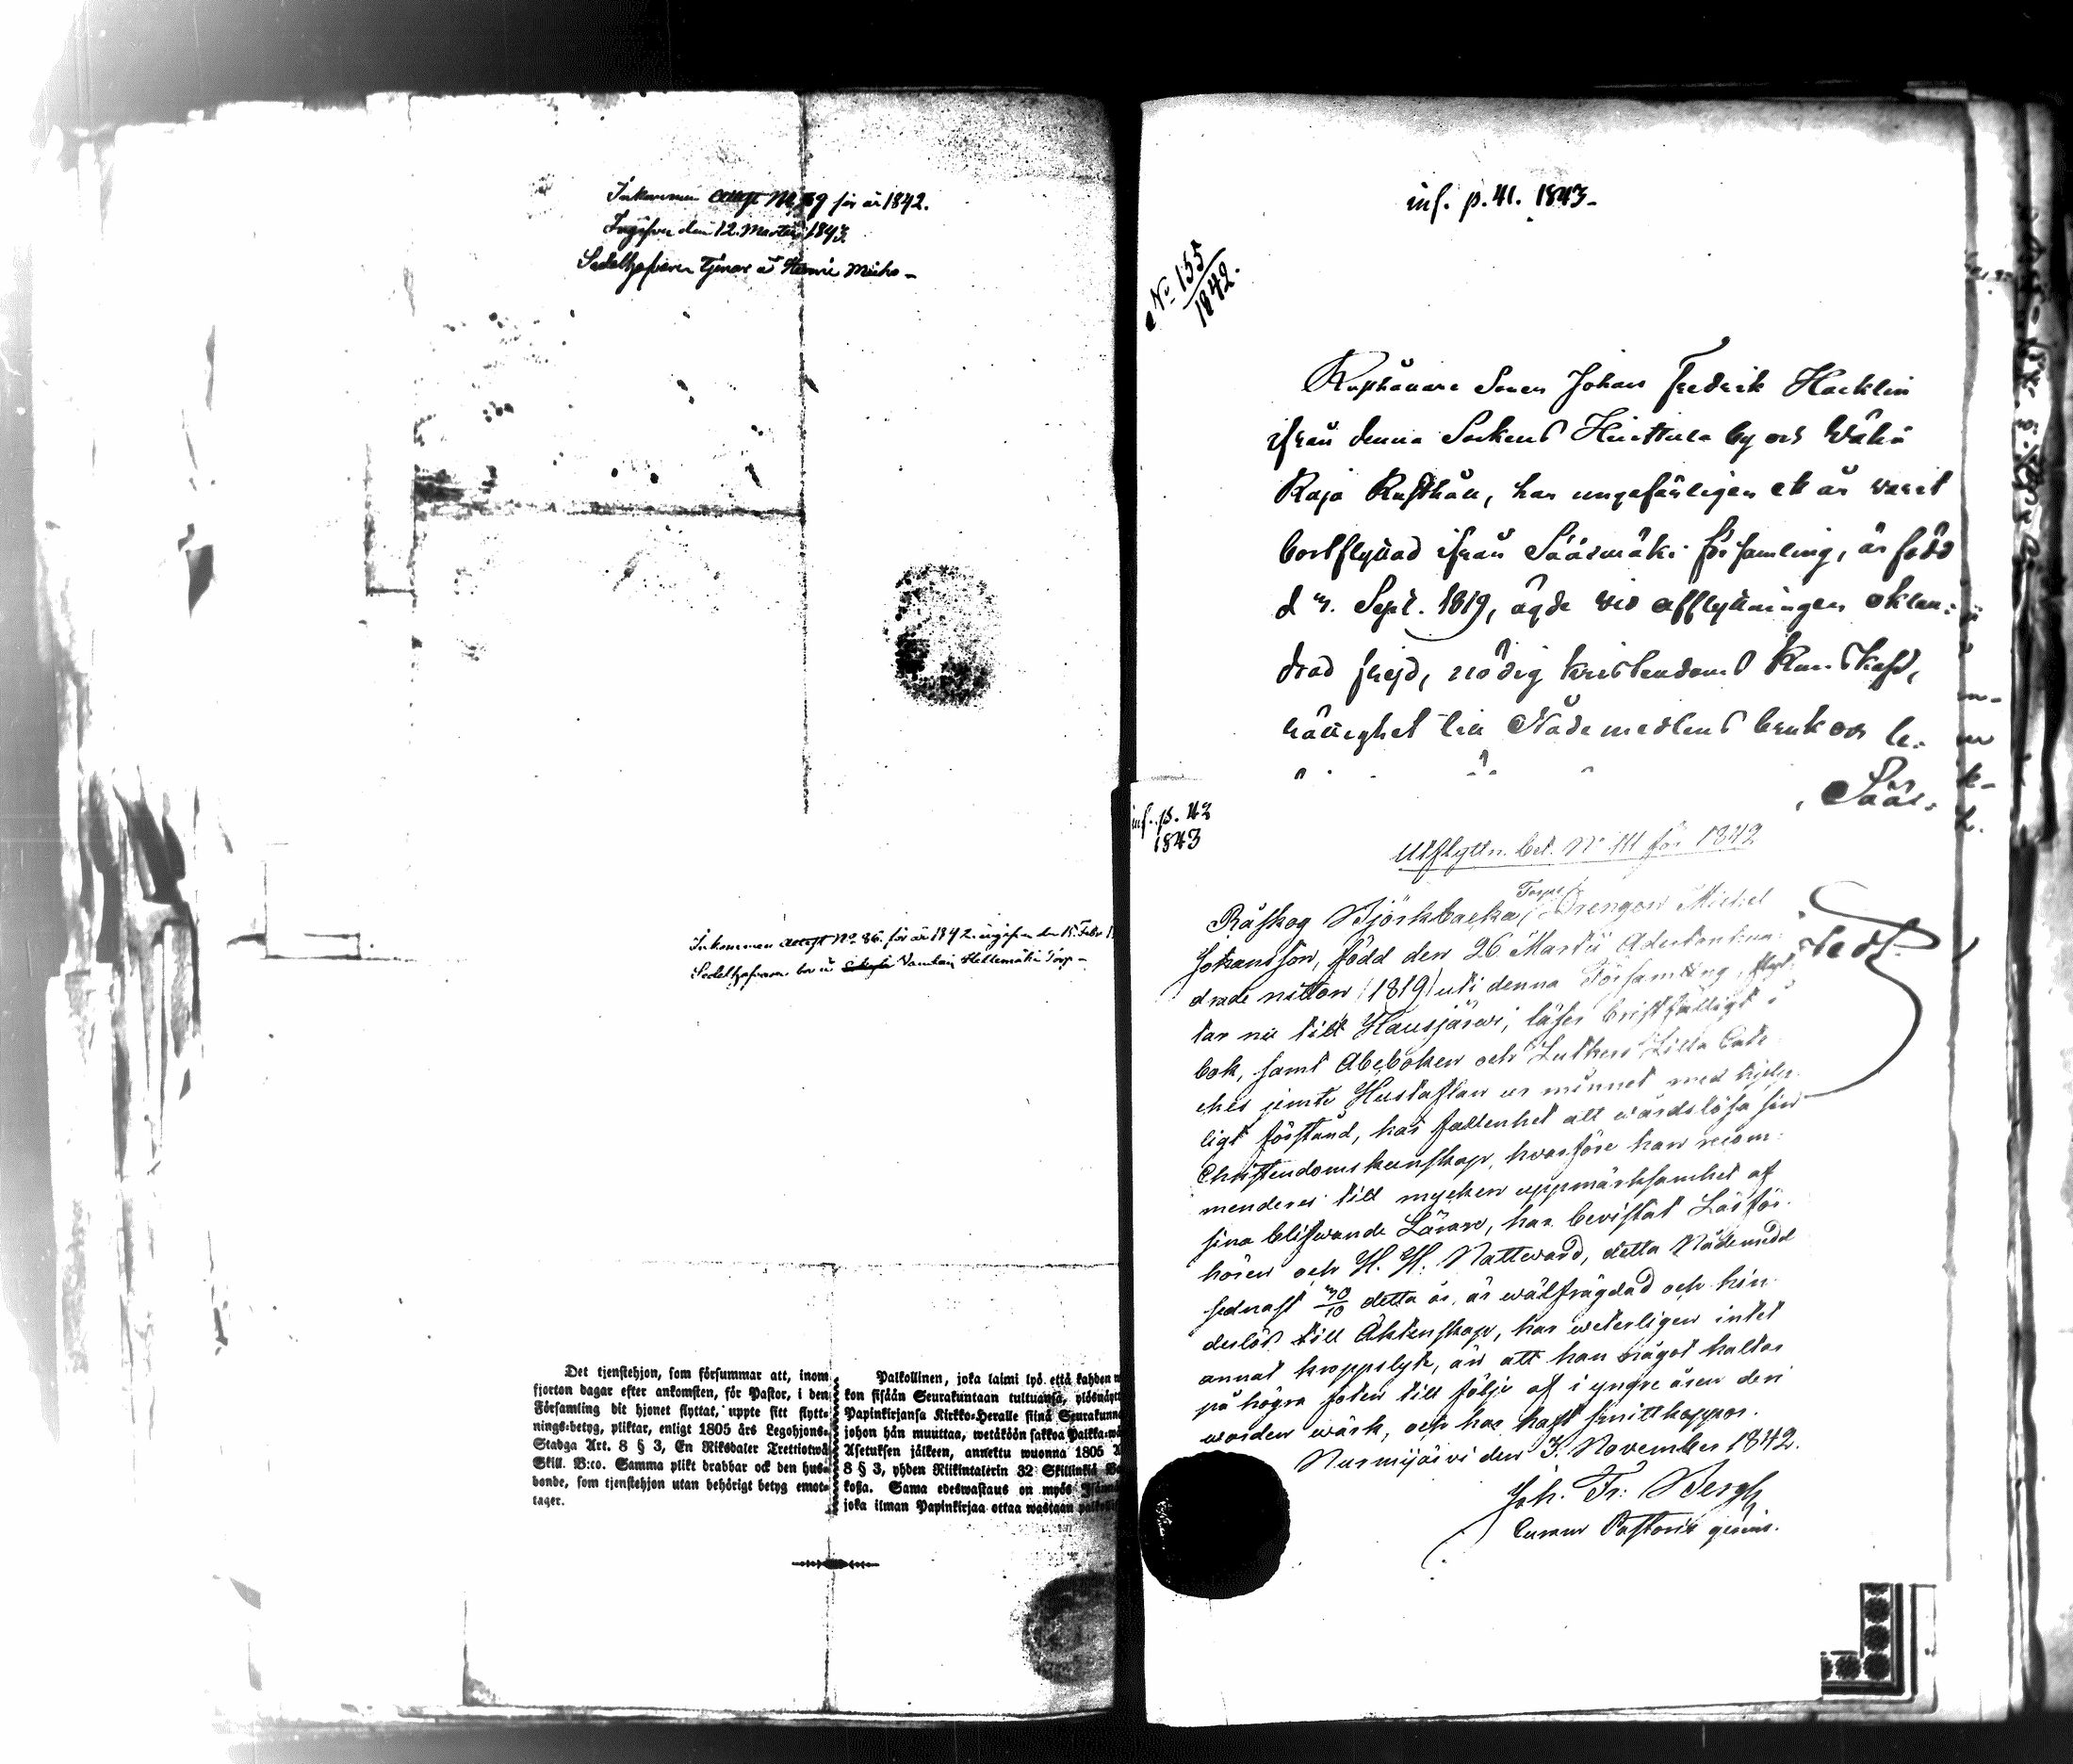 Inkommen attest No 79 för år 1842.
Ingifven den 12. Martii 1843.
Sedelhafvaren tjenar å
Inkommen attest No 86. för år 1842. ingifven den 15. Febr.
Sedelhafvaren bor å Hellemäki Torp
Det tjenstehjon, som försummar att, inom
fjorton dagar efter ankomsten, för Pastor, i den
Församling dit hjonet flyttat, uppte sitt flytt-
nings-betyg, pliktar, enligt 1805 års Legohjons-
Stadga Art. 8 § 3, En Riksdaler Trettiotwå
Skill. B:co. Samma plikt drabbar ock den hus-
bonde, som tjenstehjon utan behörigt betyg emot-
tager.
Palkollinen, joka laimi lyö että kahden
kon sisään Seurakuntaan tultuansa, ylösnäytt
Papinkirjansa Kirkko-Heralle siinä Seurakunn
johon hän muuttaa, wetäköön sakkoa Palkka-wä
Asetuksen jälkeen, annettu wuonna 1805
8 § 3, yhden Riikintalerin 32 Skillinkiä
kossa. Sama edeswastaus on myös Isännä
joka ilman Papinkirjaa ottaa wastaan palkolli
inf. p. 41. 1843-
No 155
1842.
Rusthånare Sonen Johan Fredrik Hacklin
ifrån denna Sockens Huittula by och Wähä
Raja Rusthåll, har ungefärligen ett år varit
bortflyttad ifrån Sääsmäki församling, är född
d 3. Sept. 1819, ägde vid afflyttningen oklan-
drad frejd, nödig kristendoms kunskap,
rättighet till Nådemedlens bruk och le-
Sääs-
inf. p. 42
1843
Utflyttn. bet. No 111 för 1842
Torp
Råskog Björkbacka, Drengen Michel
Johansson, född den 26 Martii Adertonhun-
drade nitton (1819) uti denna Församling, flyt-
tar nu till Hausjärvi, läser bristfälligt i
bok, samt Abeboken och Luthers Lilla Cate-
ches jemte Hustaflan ur minnet med tydeligt
ligt förstånd, har fallenhet att wårdslösa sin
Christendomskunskap, hvarföre han recom-
menderas till mycken uppmärksamhet af
sina blifwande Lärare, har bevistat Läsför-
hören och H. H. Nattward, detta Nådemedel
sednast 30/10 detta år, är wälfrägdad och hin-
derlös till Äktenskap, har weterligen intet
annat kroppslyte, än att han något haltar
på högra foten till följe af i yngre åren den
worden wärk, och har haft smittkoppor.
Nurmijärvi den 3. November 1842.
Joh. Fr: Bergh
Curam Pastoris gerens.